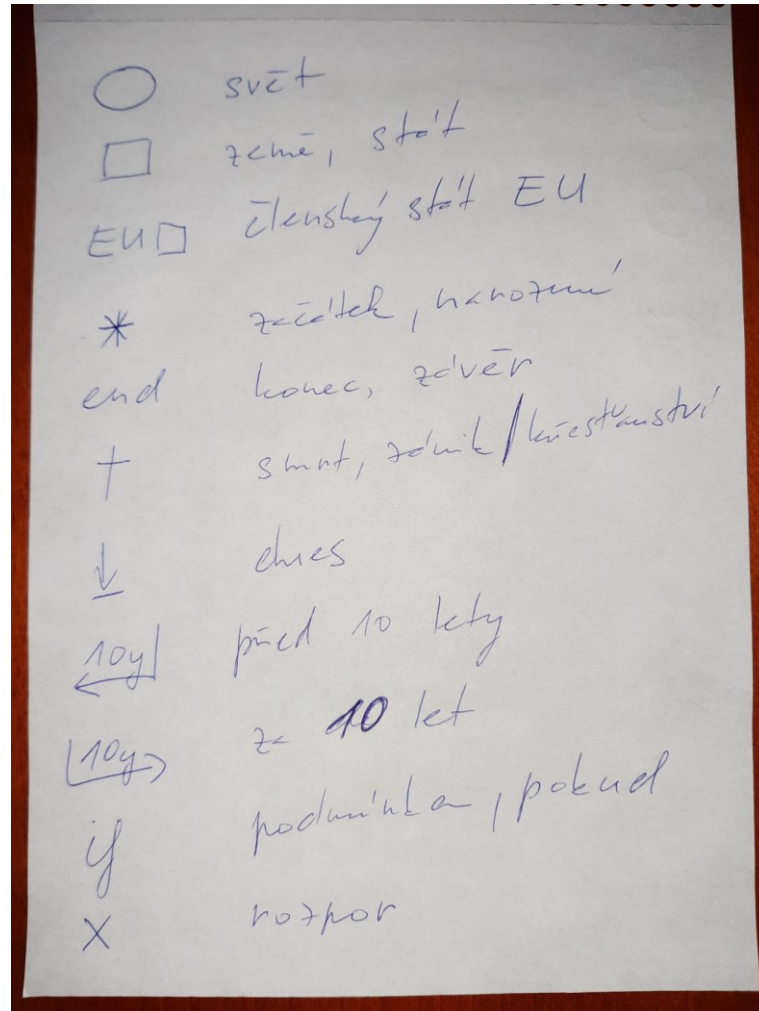 svět
země, stát
EU□ členský stát EU
* začátek, narození
end konec, závěr
† smrt, zánik/křesťanství
↓ dnes
10y před 10 lety
10y za 10 let
if podmínka, pokud
× rozpor